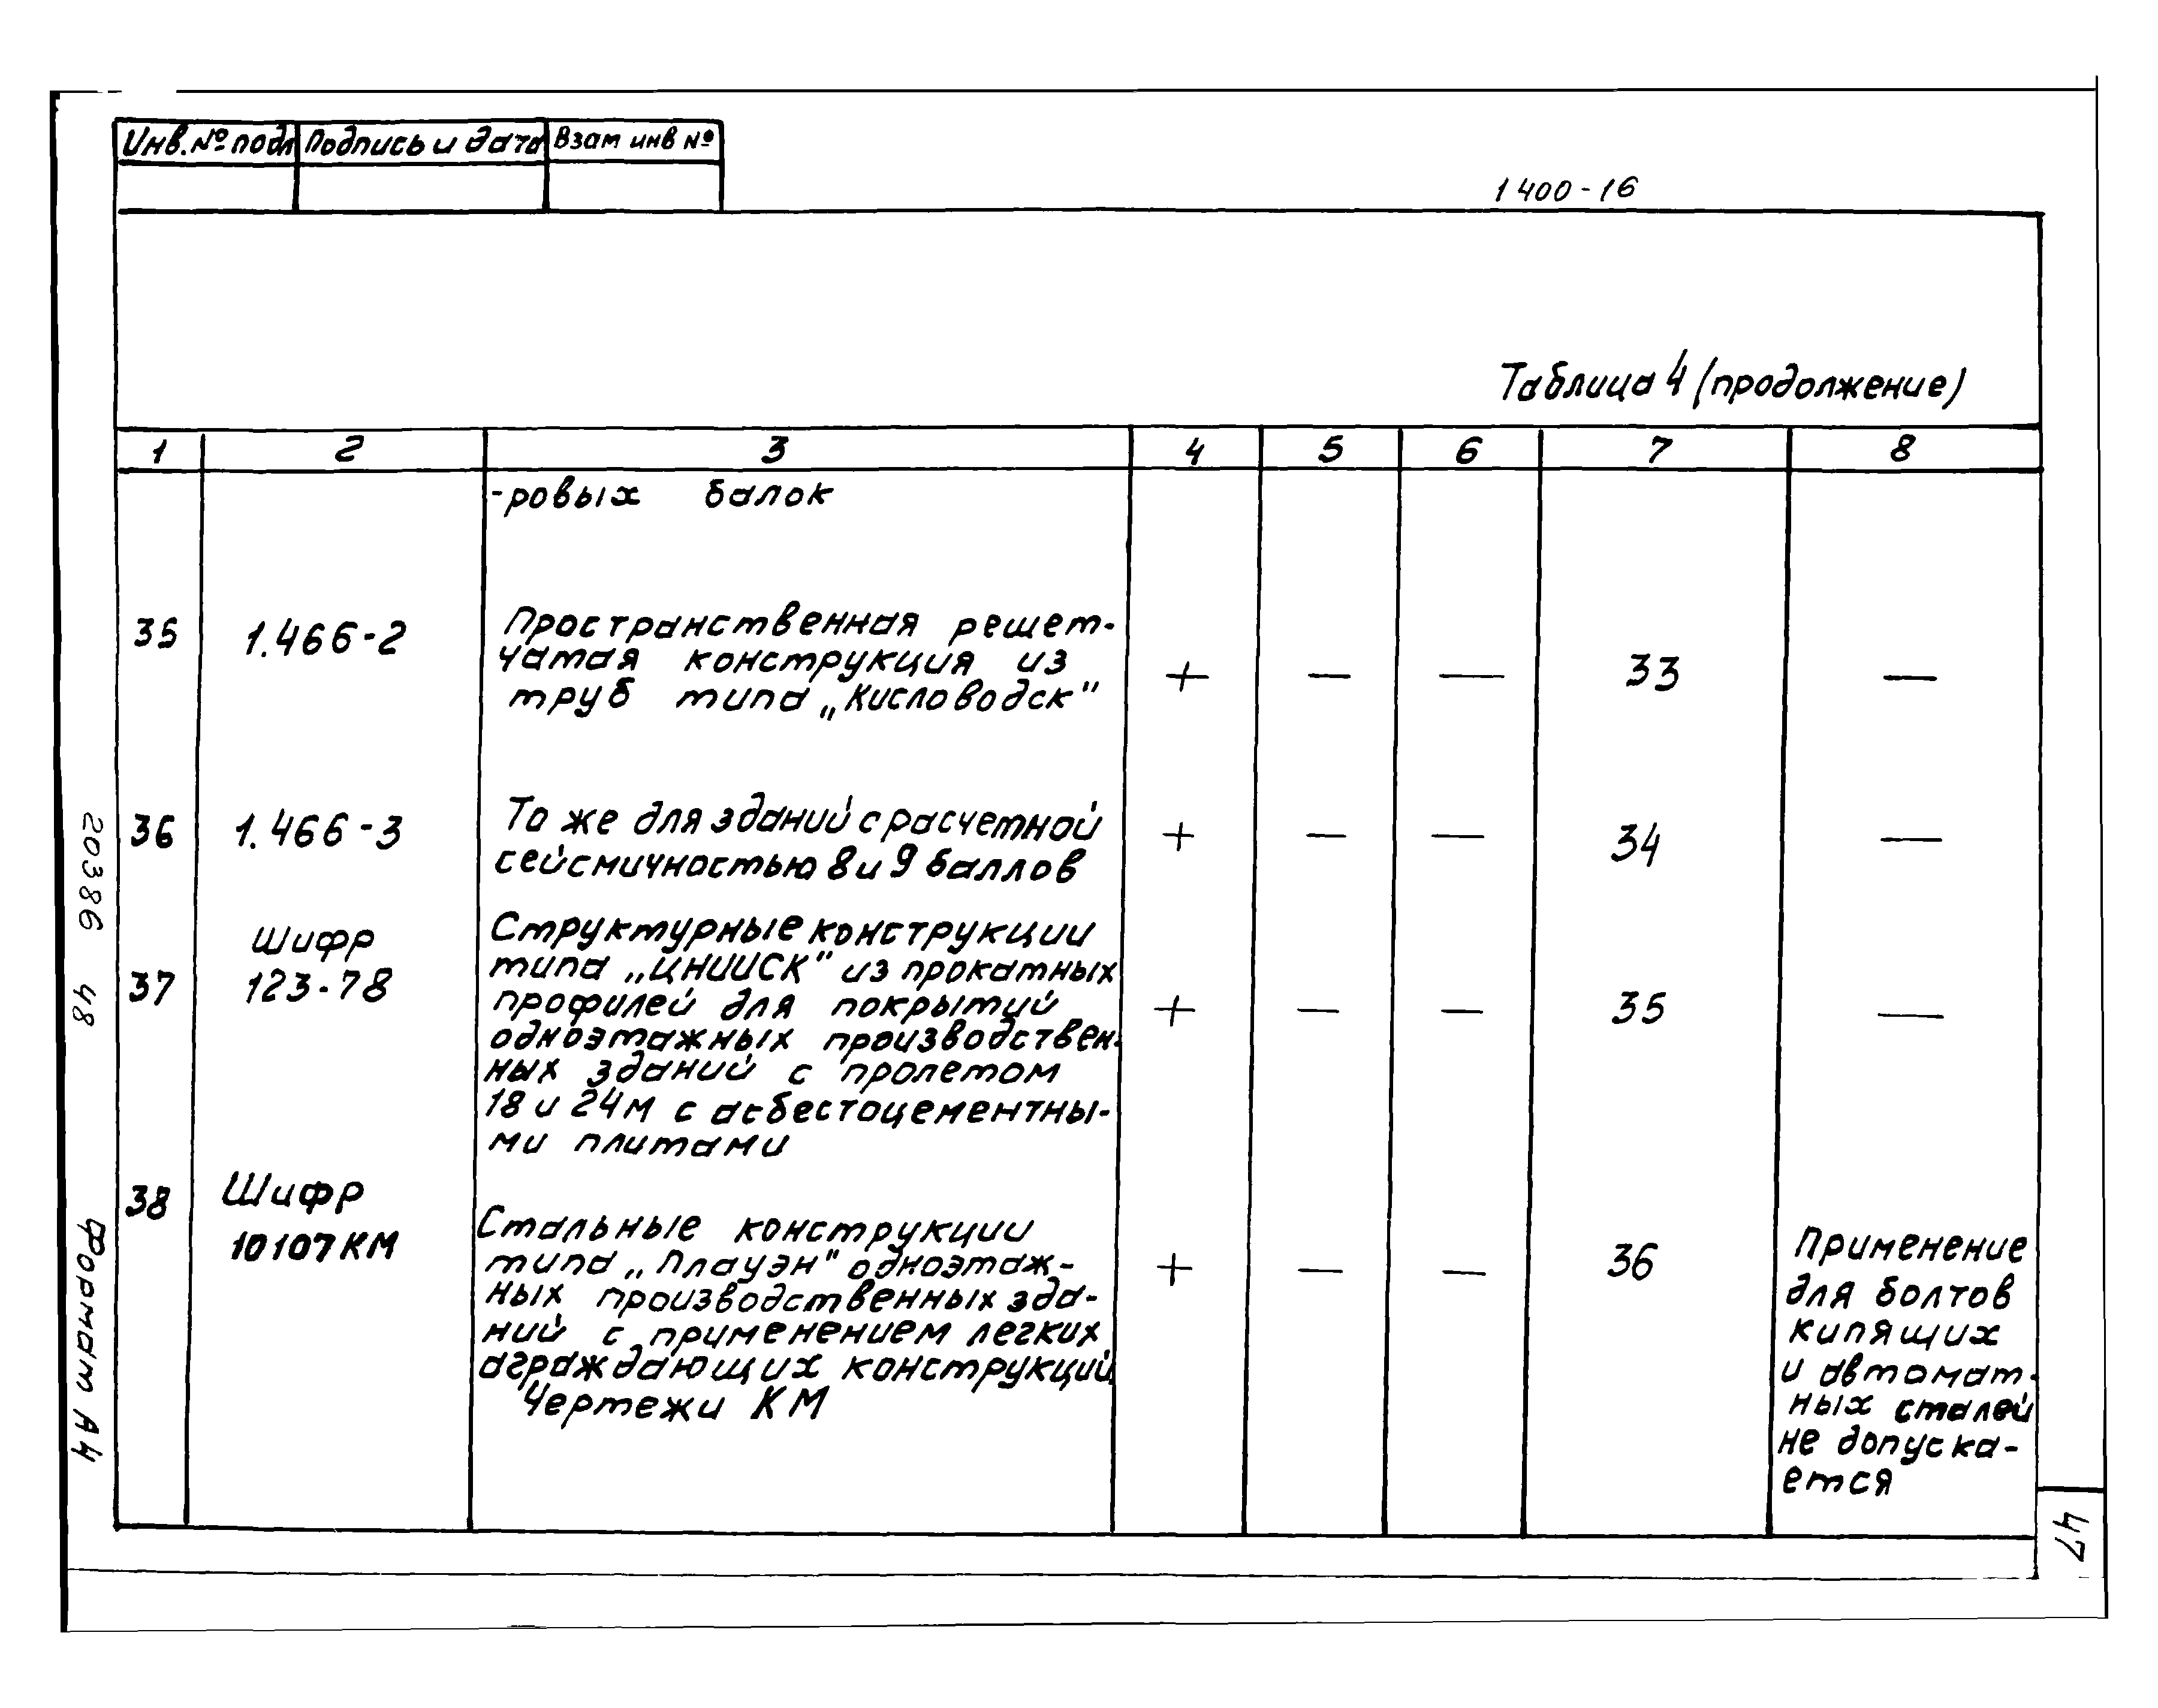 Инв. № подл Подпись и дата Взам инв №
1 400-16
Таблица 4 (продолжение)
1 2 3 4 5 6 7 8
-ровых балок
35 1.466-2 Пространственная решет-
чатая конструкция из
труб типа „Кисловодск"
+ — — 33 —
36 1.466-3 То же для зданий с расчетной
сейсмичностью 8 и 9 баллов
+ — — 34 —
37 Шифр
123-78
Структурные конструкции
типа „ЦНИИСК" из прокатных
профилей для покрытий
одноэтажных производствен-
ных зданий с пролетом
18 и 24м с асбестоцементны-
ми плитами
+ — — 35 —
38 Шифр
10107КМ
Стальные конструкции
типа „Плауэн" одноэтаж-
ных производственных зда-
ний с применением легких
аграждающих конструкций
Чертежи КМ
+ — — 36
Применение
для болтов
кипящих
и автомат-
ных сталей
не допуска-
ется
20386 48
Формат А4
47